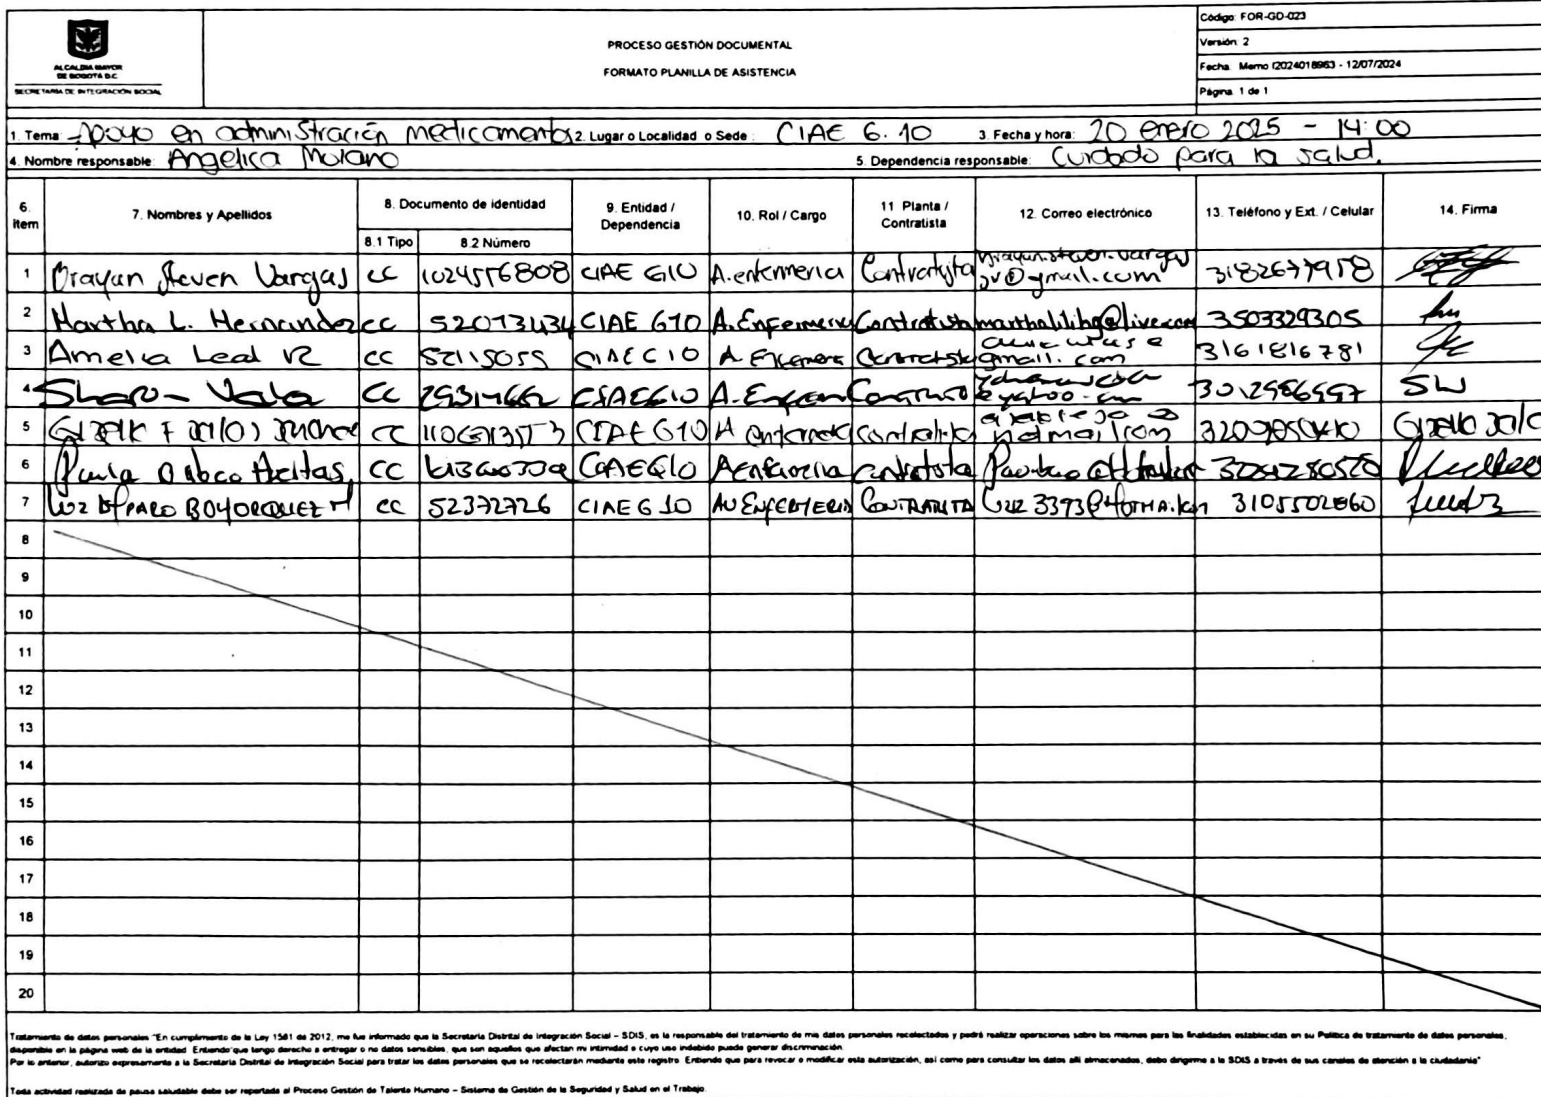 ALCALDIA MAYOR
DE BOGOTÁ D.C.
SECRETARÍA DE INTEGRACIÓN SOCIAL
PROCESO GESTIÓN DOCUMENTAL
FORMATO PLANILLA DE ASISTENCIA
Código: FOR-GD-023
Versión: 2
Fecha: Memo I2024018963 - 12/07/2024
Página: 1 de 1
1. Tema: Apoyo en administración medicamentos 2. Lugar o Localidad o Sede: CIAE G. 10 3. Fecha y hora: 20 enero 2025 - 14:00
4. Nombre responsable: Angelica Molano 5. Dependencia responsable: Cuidado para la salud.
6. Item 7. Nombres y Apellidos 8. Documento de identidad 9. Entidad / Dependencia 10. Rol / Cargo 11 Planta / Contratista 12. Correo electrónico 13. Teléfono y Ext. / Celular 14. Firma
8.1 Tipo 8.2 Número
1 Brayan Steven Vargas CC 1024556808 CIAE G10 A. enfermeria Contratista 3182677958
2 Martha L. Hernandez cc CIAE G10 A. Enfermeria Contratista marthalilihg@live.com 3503329305
3 Amelia Leal R cc 52115055 CIAE G10 A. Enfermera Contratista gmail.com 3161816781
4 CC CIAEG10 A. Enfer Contratista SW
5 CC CIAE G10 A enfermera contratista hotmail.com
6 Paula CC CIAEG10 A Enfermeria Contratista
7 Luz Amparo BOHORQUEZ M cc 52372726 CIAE G 10 AU ENFERMERIA CONTRATISTA 3105502860
8
9
10
11
12
13
14
15
16
17
18
19
20
Tratamiento de datos personales "En cumplimiento de la Ley 1581 de 2012, me fue informado que la Secretaría Distrital de Integración Social – SDIS, es la responsable del tratamiento de mis datos personales recolectados y podrá realizar operaciones sobre los mismos para las finalidades establecidas en su Política de tratamiento de datos personales,
disponible en la página web de la entidad. Entiendo que tengo derecho a entregar o no datos sensibles, que son aquellos que afectan mi intimidad o cuyo uso indebido puede generar discriminación.
Por lo anterior, autorizo expresamente a la Secretaría Distrital de Integración Social para tratar los datos personales que se recolectarán mediante este registro. Entiendo que para revocar o modificar esta autorización, así como para consultar los datos allí almacenados, debo dirigirme a la SDIS a través de sus canales de atención a la ciudadanía"
Toda actividad realizada de pausa saludable debe ser reportada al Proceso Gestión de Talento Humano – Sistema de Gestión de la Seguridad y Salud en el Trabajo.